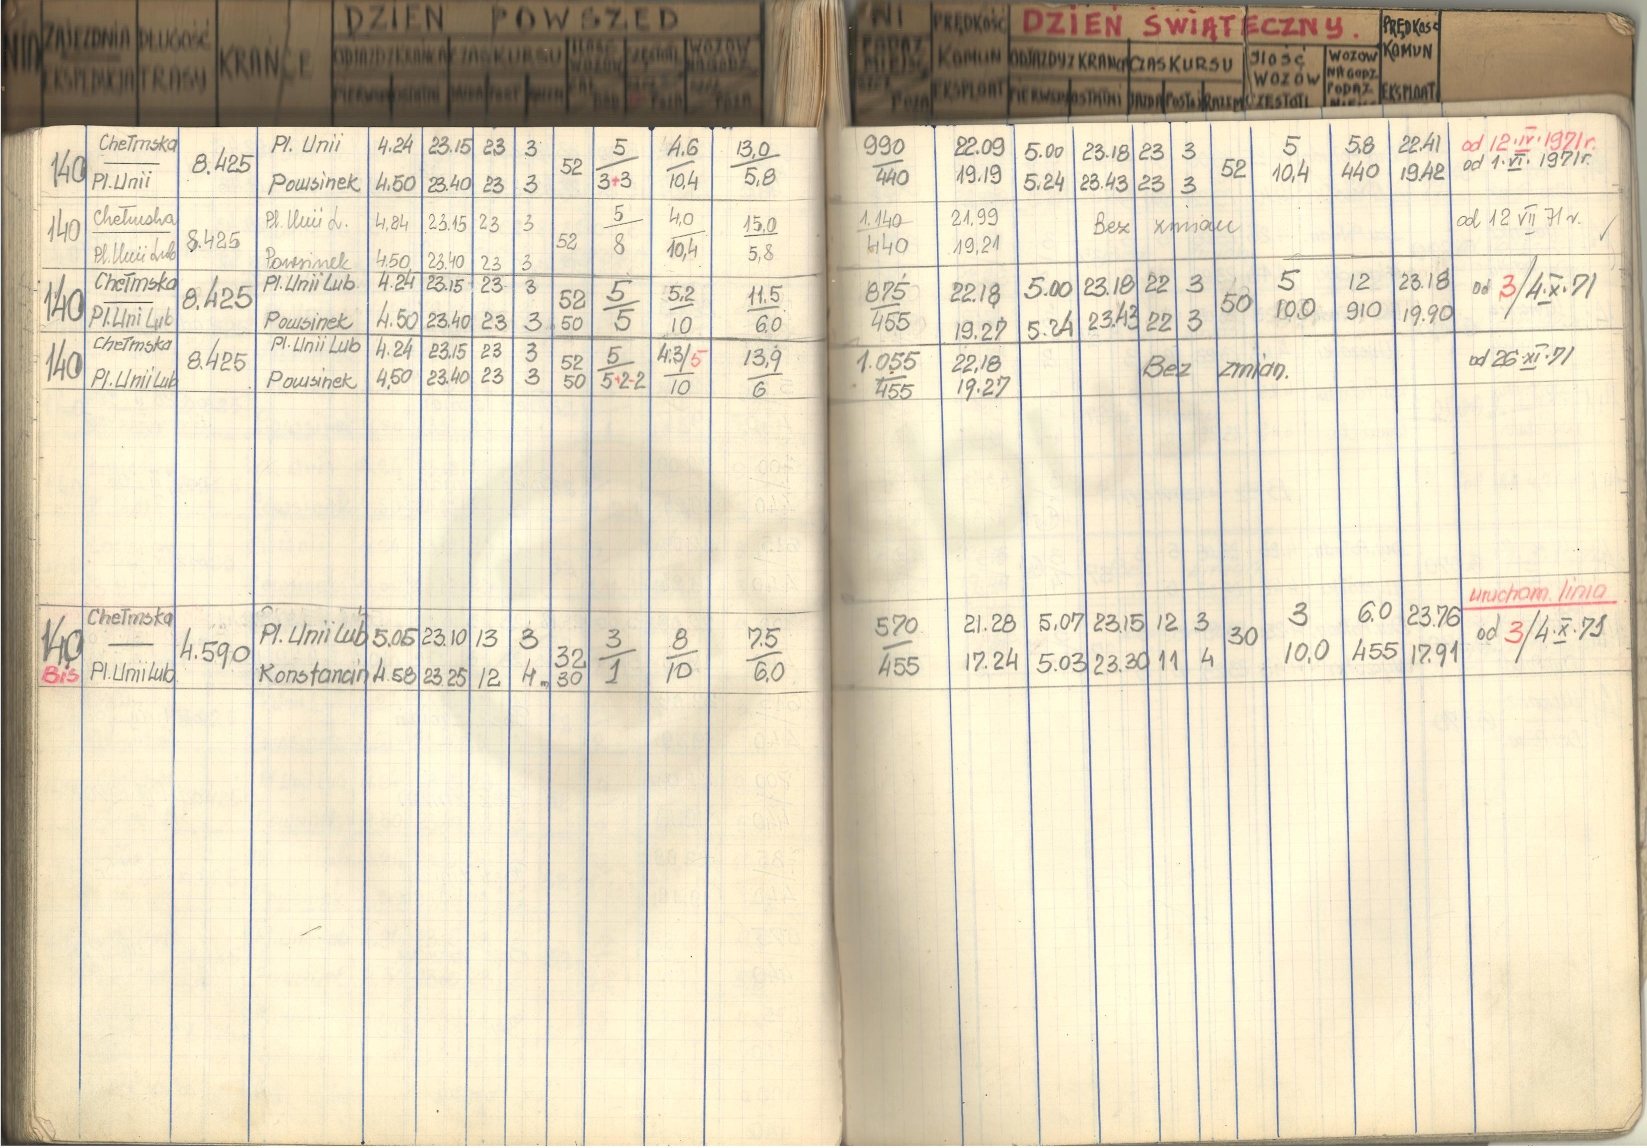 DZIEŃ POWSZED
ZAJEZDNIA DŁUGOŚĆ KRAŃCE ODJAZDY Z KRAŃCA CZAS KURSU ILOŚĆ WOZÓW
EKSPEDYCJA TRASY PIERWSZ OSTATNI
NI PRĘDKOŚĆ DZIEŃ ŚWIĄTECZNY. PRĘDKOŚĆ
KOMUN ODJAZDY Z KRAŃCA CZAS KURSU ILOŚĆ WOZÓW WOZÓW NA GODZ. KOMUN
EKSPLOAT PIERWSZ OSTATNI JAZDA POSTÓJ RAZEM CZĘSTOTL PODAŻ EKSPLOAT
140 Chełmska 8.425 Pl. Unii 4.24 23.15 23 3 52 5 4.6 13,0 990 22.09 5.00 23.18 23 3 52 5 5.8 22.41 od 12.IV.1971r.
Pl. Unii Powsinek 4.50 23.40 23 3 3+3 10,4 5,8 440 19.19 5.24 23.43 23 3 10,4 440 19.42 od 1.VI.1971r.
140 Chełmska 8.425 Pl. Unii L. 4,24 23.15 23 3 52 5 4,0 15,0 1.140 21,99 Bez zmian od 12 VII 71 r.
Pl. Unii Lub Powsinek 4.50 23.40 23 3 8 10,4 5,8 440 19,21
140 Chełmska 8.425 Pl. Unii Lub. 4.24 23.15 23 3 52 5 5,2 11.5 875 22.18 5.00 23.18 22 3 50 5 12 23.18 od 3/4.X.71
Pl. Unii Lub Powsinek 4.50 23.40 23 3 50 5 10 6.0 455 19.27 5.24 23.43 22 3 10.0 910 19.90
140 Chełmska 8.425 Pl. Unii Lub 4.24 23.15 23 3 52 5 4.3/5 13,9 1.055 22,18 Bez zmian. od 26.XI.71
Pl. Unii Lub Powsinek 4,50 23.40 23 3 50 5+2-2 10 6 455 19.27
uruchom. linia
140 Chełmska 4.590 Pl. Unii Lub 5.05 23.10 13 3 32 3 8 7.5 570 21.28 5.07 23.15 12 3 30 3 6.0 23.76 od 3/4.X.71
Bis Pl. Unii Lub Konstancin 4.58 23.25 12 4 30 1 10 6,0 455 17.24 5.03 23.30 11 4 10,0 455 17.91